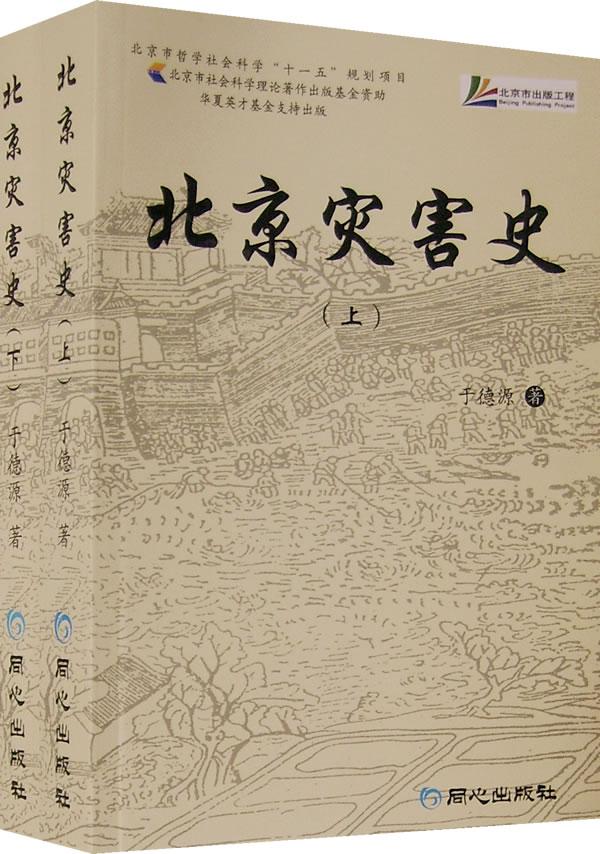 北京市哲学社会科学“十一五”规划项目
北京市社会科学理论著作出版基金资助
华夏英才基金支持出版
北京市出版工程
Beijing Publishing Project
北京灾害史
（上）
于德源 著
同心出版社
北京灾害史（上） 于德源 著 同心出版社
北京灾害史（下） 于德源 著 同心出版社